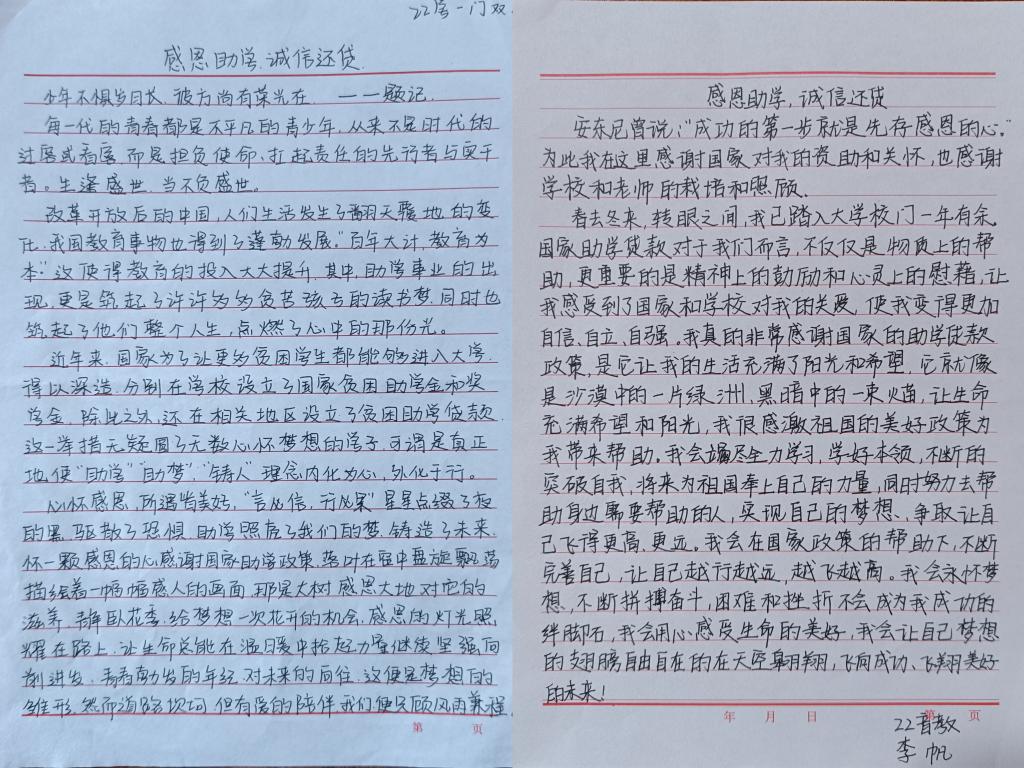 22学一门双
感恩助学.诚信还贷.
少年不惧岁月长，彼方尚有荣光在. ——题记.
每一代的青春都是不平凡的青少年，从来不是时代的
过客或看客，而是担负使命、扛起责任的先行者与实干
者。生逢盛世，当不负盛世。
改革开放后的中国，人们生活发生了翻天覆地的变
化，我国教育事物也得到了蓬勃发展."百年大计，教育为
本."这使得教育的投入大大提升.其中，助学事业的出
现，更是筑起了许许多多贫苦孩子的读书梦，同时也
筑起了他们整个人生，点燃了心中的那份光。
近年来，国家为了让更多贫困学生都能够进入大学，
得以深造，分别在学校设立了国家贫困助学金和奖
学金，除此之外，还在相关地区设立了贫困助学贷款，
这一举措无疑圆了无数心怀梦想的学子，可谓是真正
地使"助学""助梦"."铸人"理念内化为心，外化于行。
心怀感恩，所遇皆美好，"言必信，行必果"星星点缀了夜
的黑，驱散了恐惧，助学照亮了我们的梦，铸造了未来.
怀一颗感恩的心，感谢国家助学政策，落叶在空中盘旋飘荡
描绘着一幅幅感人的画面，那是大树感恩大地对它的
滋养，静卧花香，给梦想一次花开的机会，感恩的灯光照
耀在路上，让生命总能在温暖中拾起力量继续坚强，向
前进发，青春勃发的年纪，对未来的向往，这便是梦想的
雏形，然而道路坎坷，但有爱的陪伴，我们便只顾风雨兼程
第 页
感恩助学，诚信还贷
安东尼曾说："成功的第一步就是先存感恩的心."
为此我在这里感谢国家对我的资助和关怀，也感谢
学校和老师的栽培和照顾.
春去冬来，转眼之间，我已踏入大学校门一年有余.
国家助学贷款对于我们而言，不仅仅是物质上的帮
助，更重要的是精神上的鼓励和心灵上的慰藉，让
我感受到了国家和学校对我的关爱，使我变得更加
自信、自立、自强。我真的非常感谢国家的助学贷款
政策，是它让我的生活充满了阳光和希望，它就像
是沙漠中的一片绿洲，黑暗中的一束火苗，让生命
充满希望和阳光，我很感激祖国的美好政策为
我带来帮助.我会竭尽全力学习，学好本领，不断的
突破自我，将来为祖国奉上自己的力量，同时努力去帮
助身边需要帮助的人，实现自己的梦想、争取让自
己飞得更高，更远。我会在国家政策的帮助下，不断
完善自己，让自己越行越远，越飞越高。我会永怀梦
想，不断拼搏奋斗，困难和挫折不会成为我成功的
绊脚石，我会用心感受生命的美好，我会让自己梦想
的翅膀自由自在的在天空翱翔，飞向成功、飞翔美好
的未来！
年 月 日 第 页
22音教
李帆